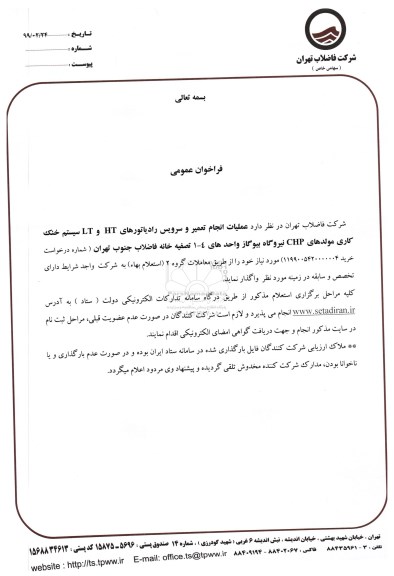 شرکت فاضلاب تهران
( سهامی خاص )
تاریخ : ۹۹/۰۲/۲۴
شماره :
پیوست :
بسمه تعالی
فراخوان عمومی
شرکت فاضلاب تهران در نظر دارد عملیات انجام تعمیر و سرویس رادیاتورهای HT و LT سیستم خنک
کاری مولدهای CHP نیروگاه بیوگاز واحد های ٤-۱ تصفیه خانه فاضلاب جنوب تهران ( شماره درخواست
خرید ) مورد نیاز خود را از طریق معاملات گروه ۲ (استعلام بهاء) به شرکت واجد شرایط دارای
تخصص و سابقه در زمینه مورد نظر واگذار نماید.
کلیه مراحل برگزاری استعلام مذکور از طریق درگاه سامانه تدارکات الکترونیکی دولت ( ستاد ) به آدرس
www.setadiran.ir انجام می پذیرد و لازم است شرکت کنندگان در صورت عدم عضویت قبلی، مراحل ثبت نام
در سایت مذکور انجام و جهت دریافت گواهی امضای الکترونیکی اقدام نمایند.
** ملاک ارزیابی شرکت کنندگان فایل بارگذاری شده در سامانه ستاد ایران بوده و در صورت عدم بارگذاری و یا
ناخوانا بودن، مدارک شرکت کننده مخدوش تلقی گردیده و پیشنهاد وی مردود اعلام میگردد.
تهران ، خیابان شهید بهشتی ، خیابان اندیشه ، نبش اندیشه ۶ غربی ( شهید گودرزی ) ، شماره ۱۴ صندوق پستی : ۵۶۹۶-۱۵۸۷۵ کد پستی : ۱۵۶۸۸۳۴۶۱۳
تلفن : ۳ - ۸۸۴۳۵۹۶۱ فاکس : ۸۸۴۰۲۰۶۷ - ۸۸۴۰۹۱۹۴ website : http://ts.tpww.ir E-mail: office.ts@tpww.ir